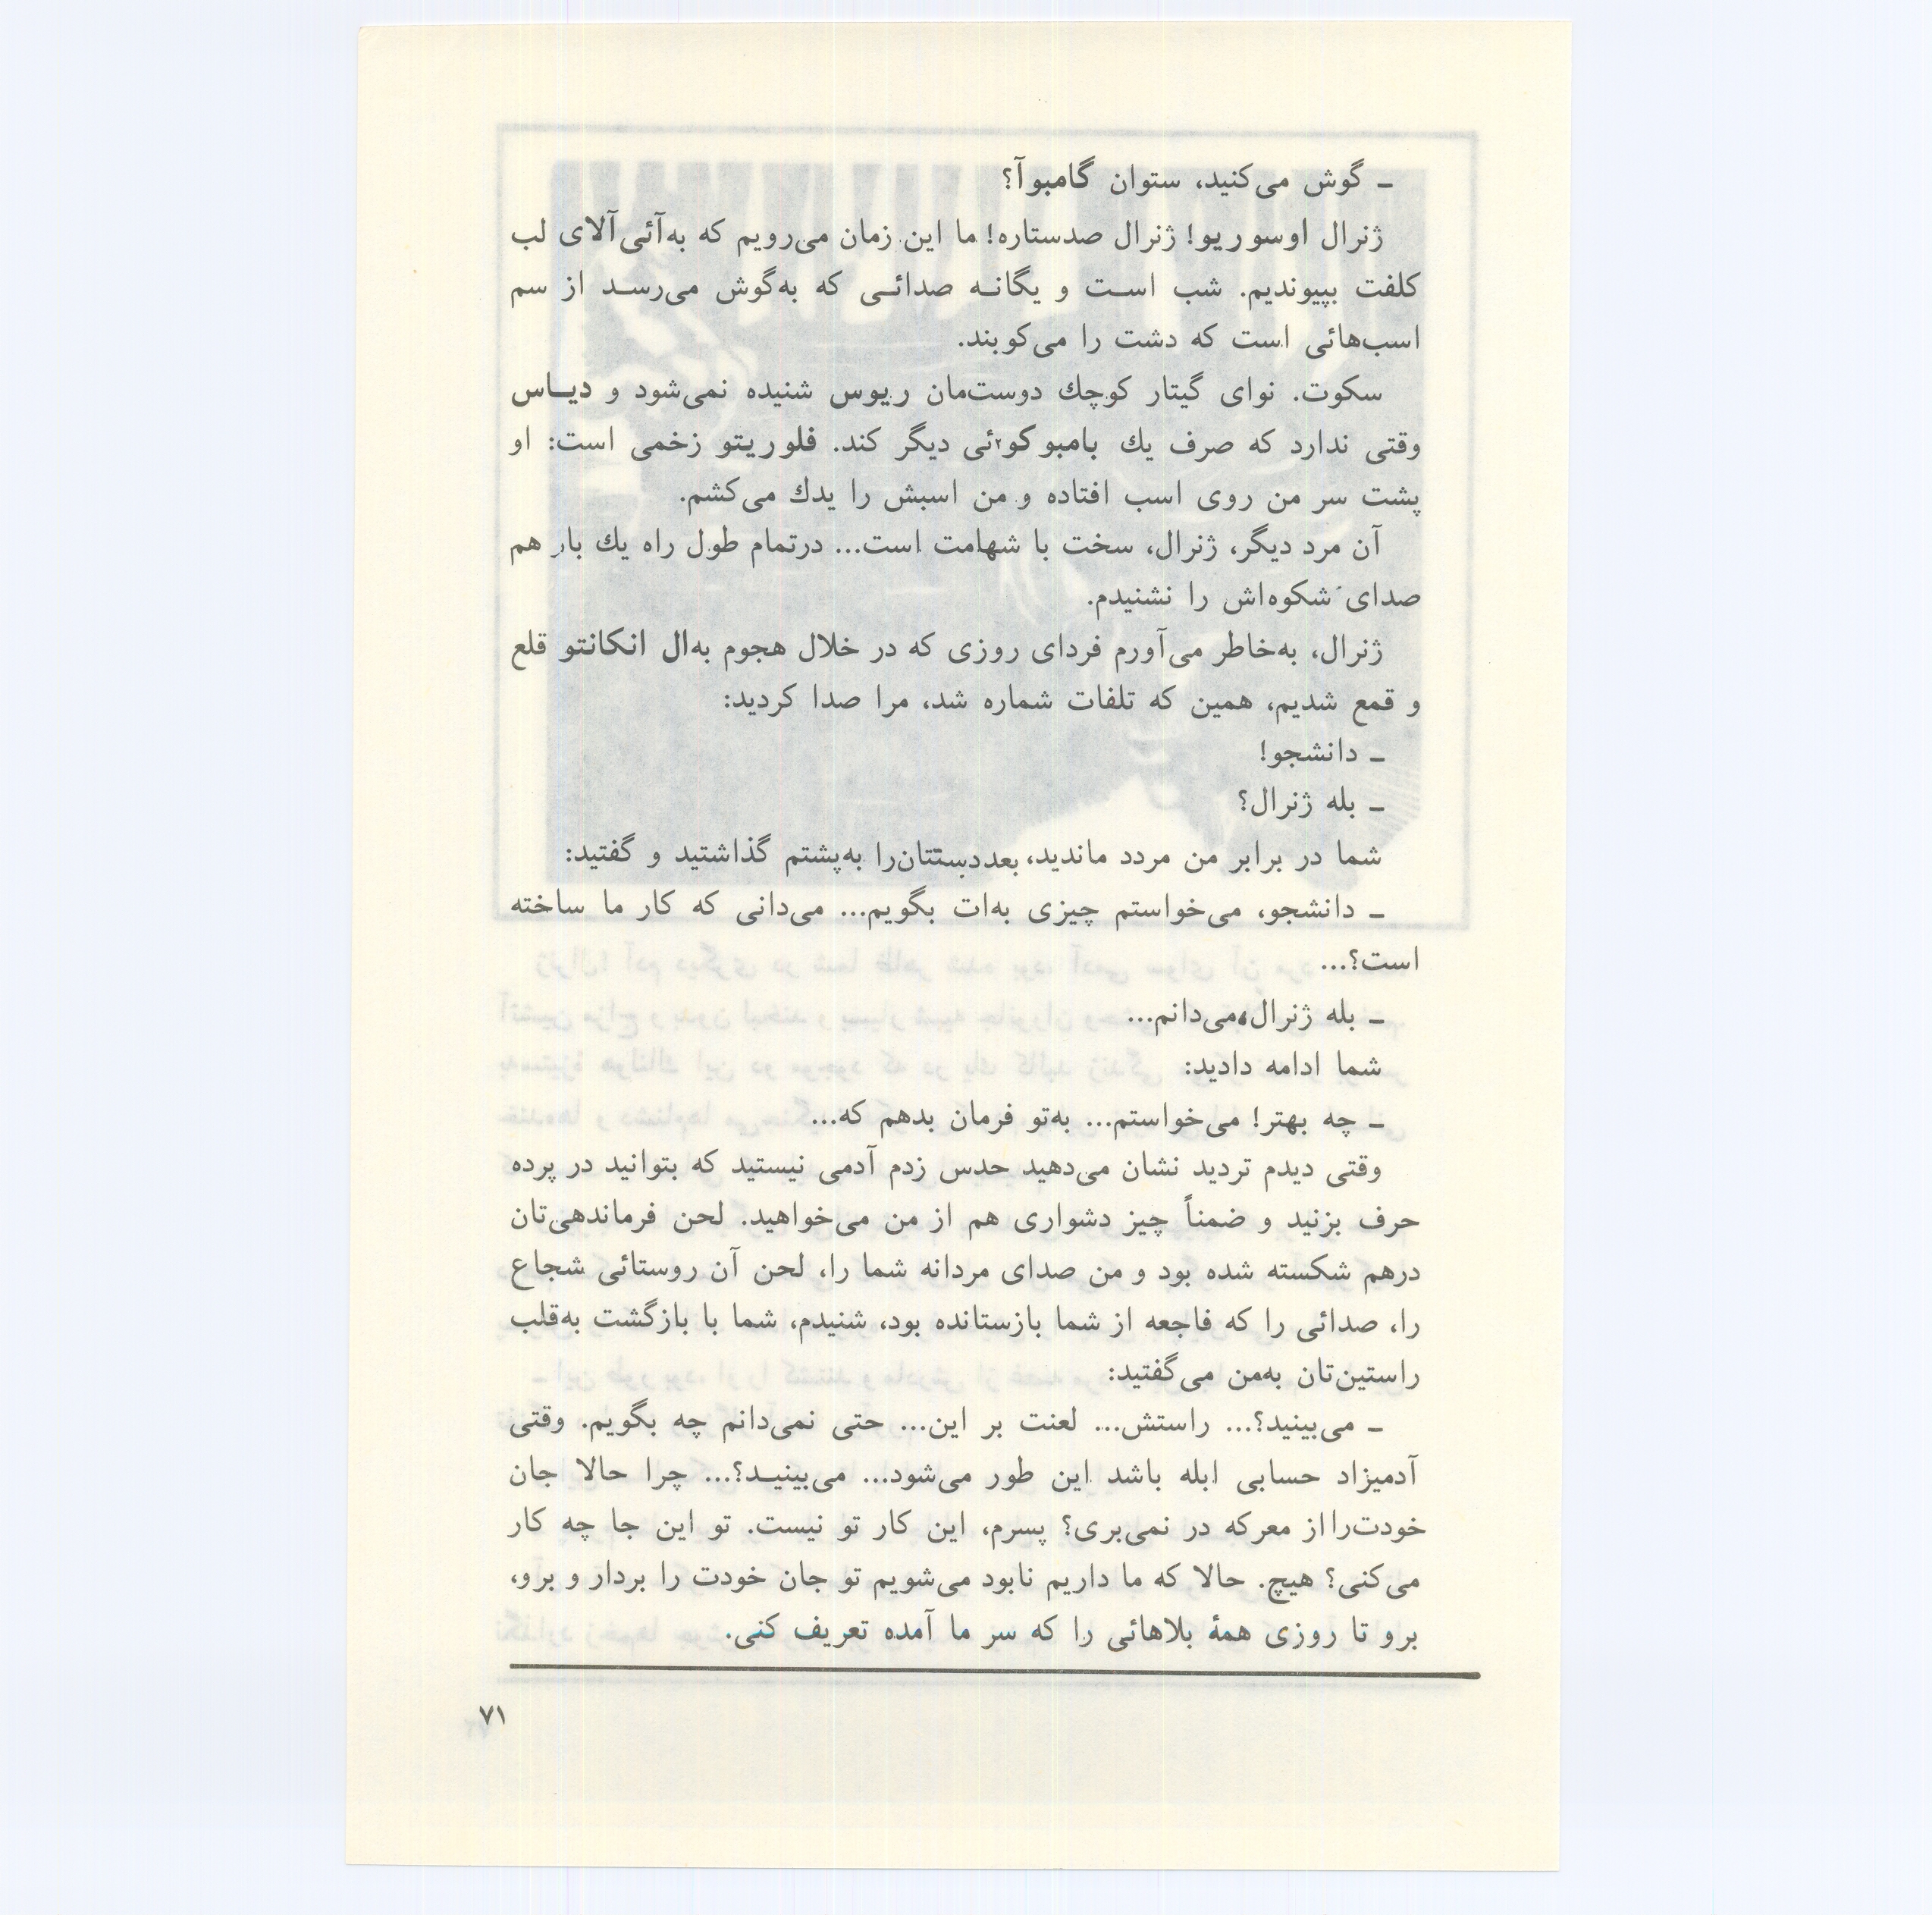 ـ گوش می‌کنید، ستوان گامبوآ؟
ژنرال اوسوریو! ژنرال صدستاره! ما این زمان می‌رویم که به‌آئی‌آلای لب
کلفت بپیوندیم. شب است و یگانه صدائی که به‌گوش می‌رسد از سم
اسب‌هائی است که دشت را می‌کوبند.
سکوت. نوای گیتار کوچك دوست‌مان ریوس شنیده نمی‌شود و دیاس
وقتی ندارد که صرف یك بامبوکو۲ئی دیگر کند. فلوریتو زخمی است: او
پشت سر من روی اسب افتاده و من اسبش را یدك می‌کشم.
آن مرد دیگر، ژنرال، سخت با شهامت است... درتمام طول راه یك بار هم
صدای شکوه‌اش را نشنیدم.
ژنرال، به‌خاطر می‌آورم فردای روزی که در خلال هجوم به‌ال انکانتو قلع
و قمع شدیم، همین که تلفات شماره شد، مرا صدا کردید:
ـ دانشجو!
ـ بله ژنرال؟
شما در برابر من مردد ماندید، بعددستتان‌را به‌پشتم گذاشتید و گفتید:
ـ دانشجو، می‌خواستم چیزی به‌ات بگویم... می‌دانی که کار ما ساخته
است؟...
ـ بله ژنرال، می‌دانم...
شما ادامه دادید:
ـ چه بهتر! می‌خواستم... به‌تو فرمان بدهم که...
وقتی دیدم تردید نشان می‌دهید حدس زدم آدمی نیستید که بتوانید در پرده
حرف بزنید و ضمناً چیز دشواری هم از من می‌خواهید. لحن فرماندهی‌تان
درهم شکسته شده بود و من صدای مردانه شما را، لحن آن روستائی شجاع
را، صدائی را که فاجعه از شما بازستانده بود، شنیدم، شما با بازگشت به‌قلب
راستین‌تان به‌من می‌گفتید:
ـ می‌بینید؟... راستش... لعنت بر این... حتی نمی‌دانم چه بگویم. وقتی
آدمیزاد حسابی ابله باشد این طور می‌شود... می‌بینید؟... چرا حالا جان
خودت‌رااز معرکه در نمی‌بری؟ پسرم، این کار تو نیست. تو این جا چه کار
می‌کنی؟ هیچ. حالا که ما داریم نابود می‌شویم تو جان خودت را بردار و برو،
برو تا روزی همهٔ بلاهائی را که سر ما آمده تعریف کنی.
۷۱